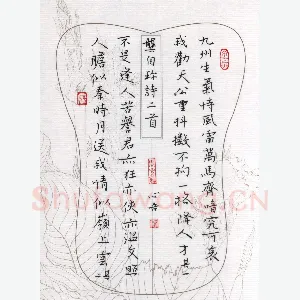 九州生氣恃風雷萬馬齊喑究可哀
我勸天公重抖擻不拘一格降人才其一
龔自珍詩二首
不是逢人苦譽君亦狂亦俠亦溫文照
人膽似秦時月送我情似嶺上雲其二
Shufawang.CN